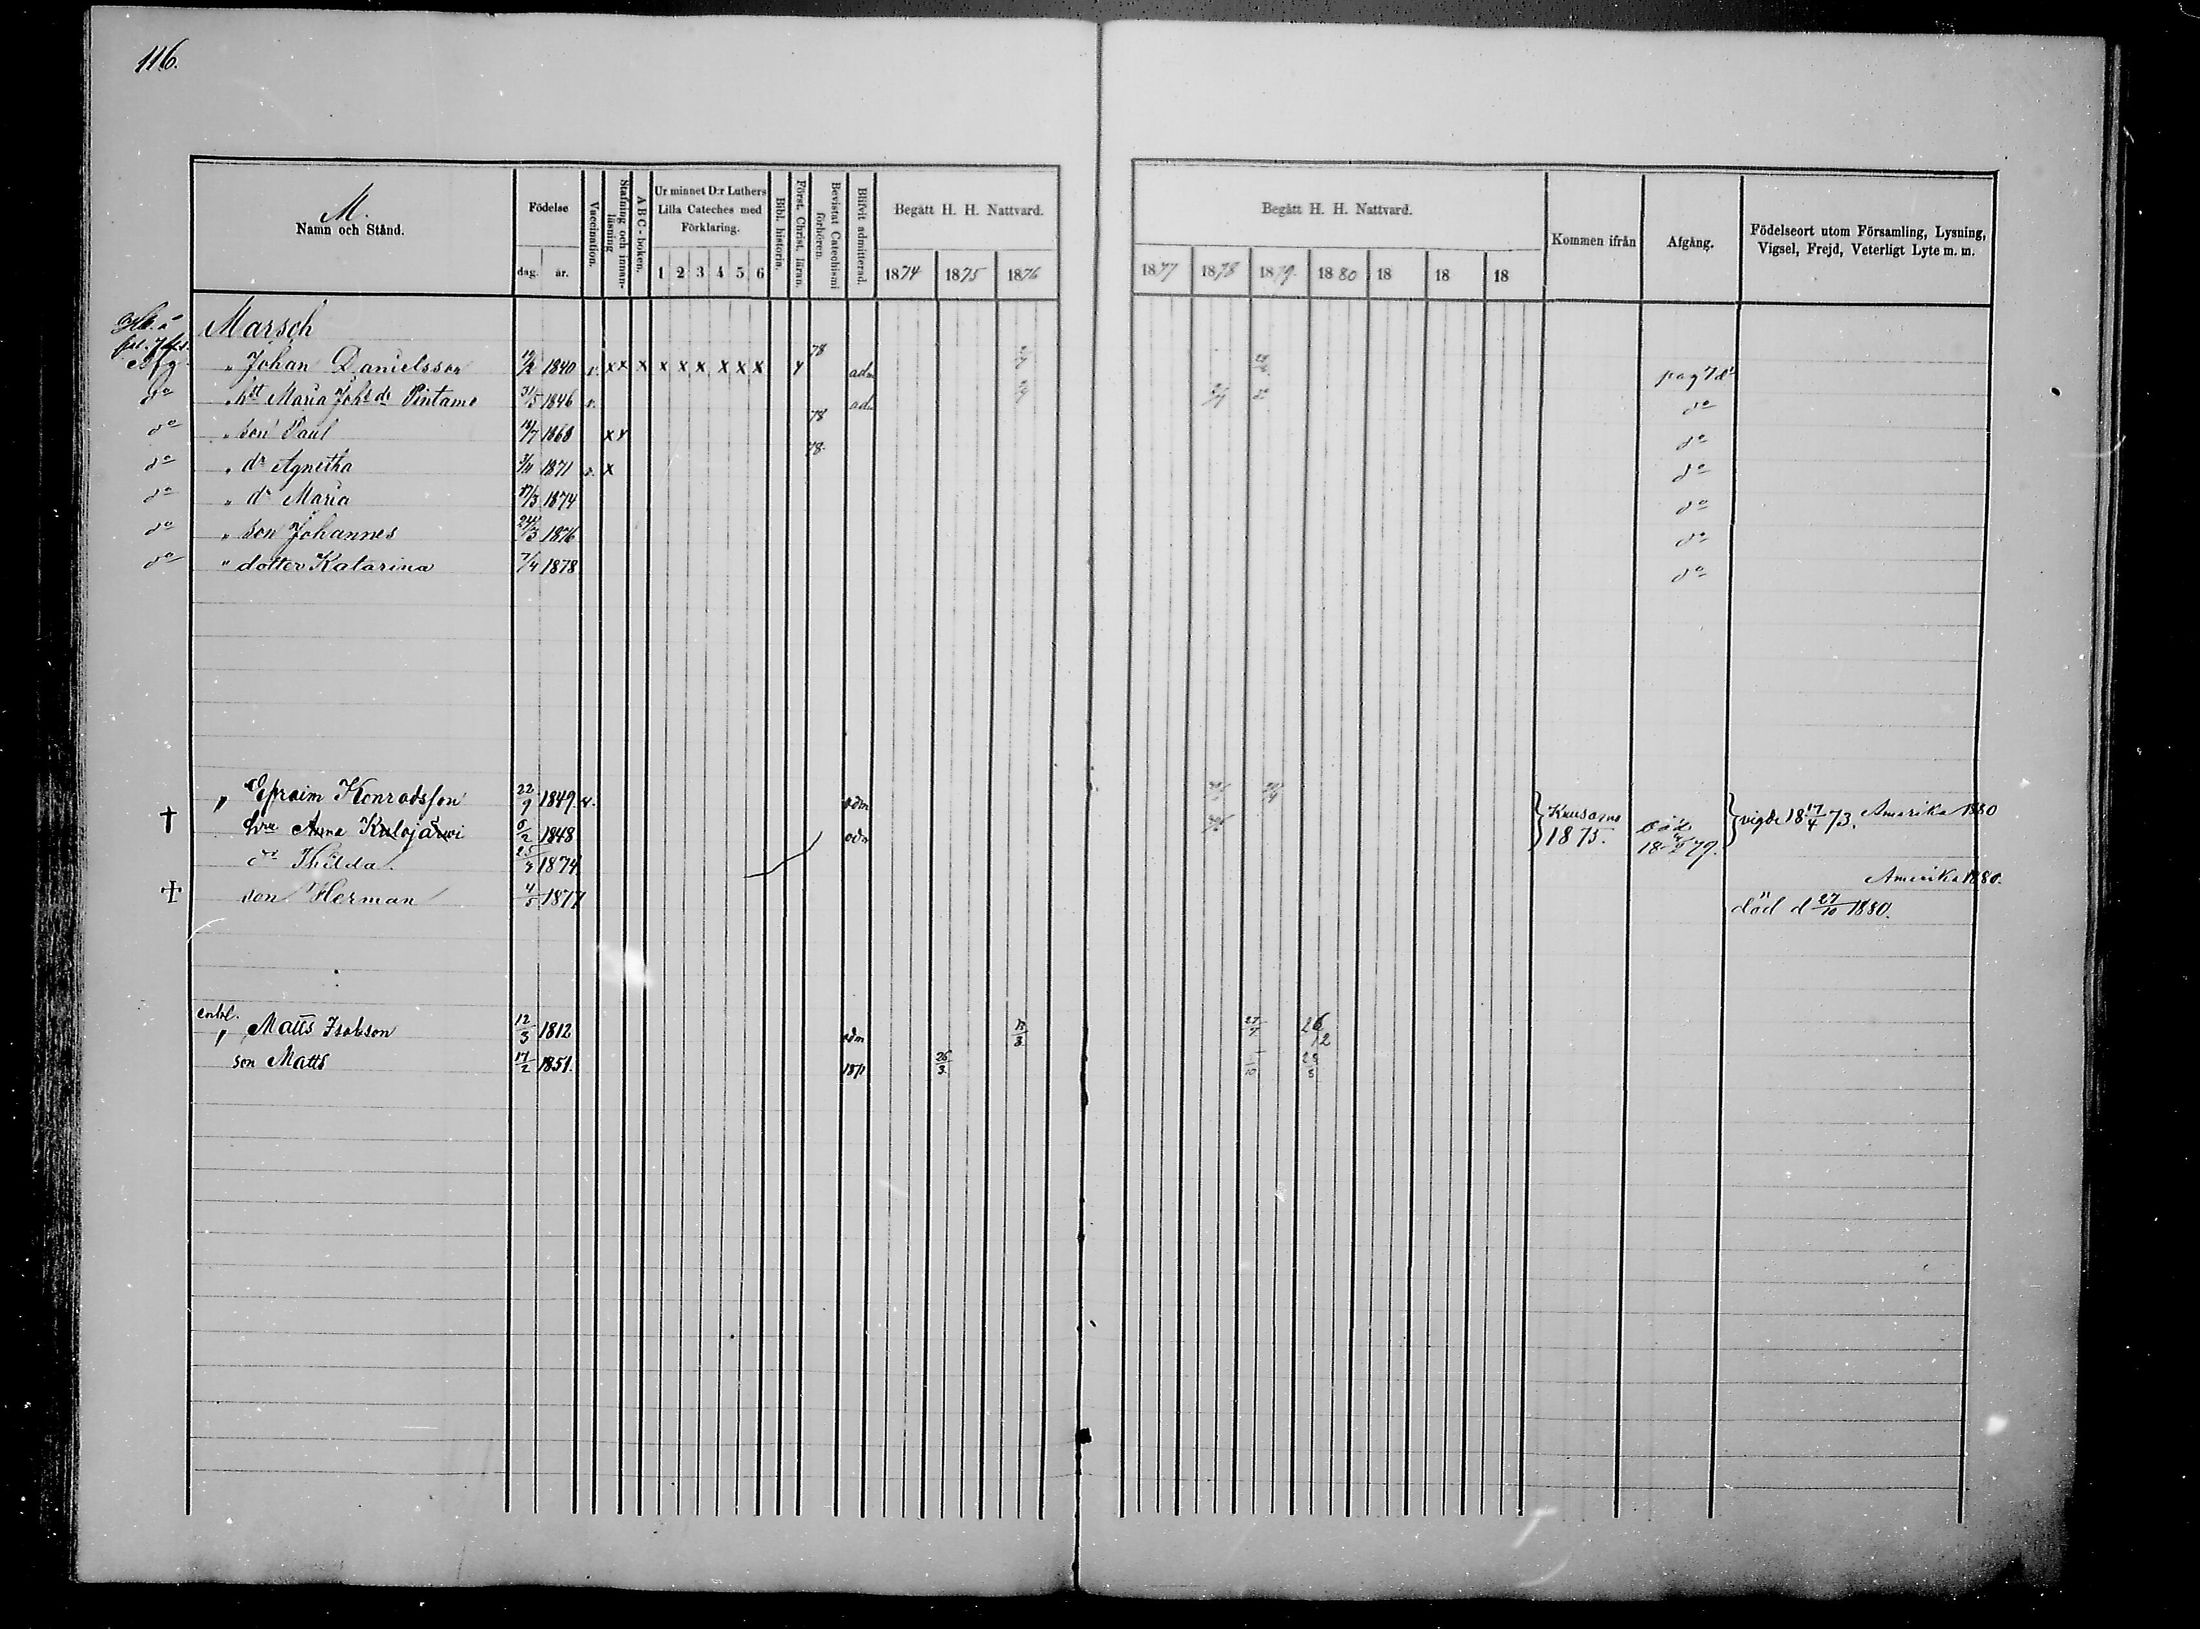 116.
M.
Namn och Stånd.
Födelse
dag. år.
Vaccination.
Stafning och innanläsning
A B C-boken.
Ur minnet D:r Luthers Lilla Cateches med Förklaring.
1 2 3 4 5 6
Bibl. historia.
Först. Christ. läran.
Bevistat Catechismi förhören.
Blifvit admitterad.
Begått H. H. Nattvard.
1874 1875 1876
Begått H. H. Nattvard.
1877 1878 1879. 1880 18 18 18
Kommen ifrån
Afgång.
Födelseort utom Församling, Lysning, Vigsel, Frejd, Veterligt Lyte m. m.
Marsch
" Johan Danielsson 1840 v. x x x x x x x x x 78 adm
do 1846 v. adm do
do " son Paul 18/7 1868 x 78 do
do " dr Agnetha 1871 v. x 78. do
do " dr Maria 17/3 1874 do
do " son Johannes 24/3 1876 do
do " dotter Katarina 7/4 1878 do
" Efraim Konradsson 22/9 1849. v. adm Kuusamo 1875. vigde 18 17/4 73. Amerika 1880
† Anna Kulojärwi 6/2 1848 adm död 18 79.
dr Hilda. 1874 Amerika 1880.
son Herman 4/5 1877 död d 27/10 1880.
enkl.
" Matts Isakson 12/3 1812 adm 26/12
son Matts 17/2 1851. 1871 26/3